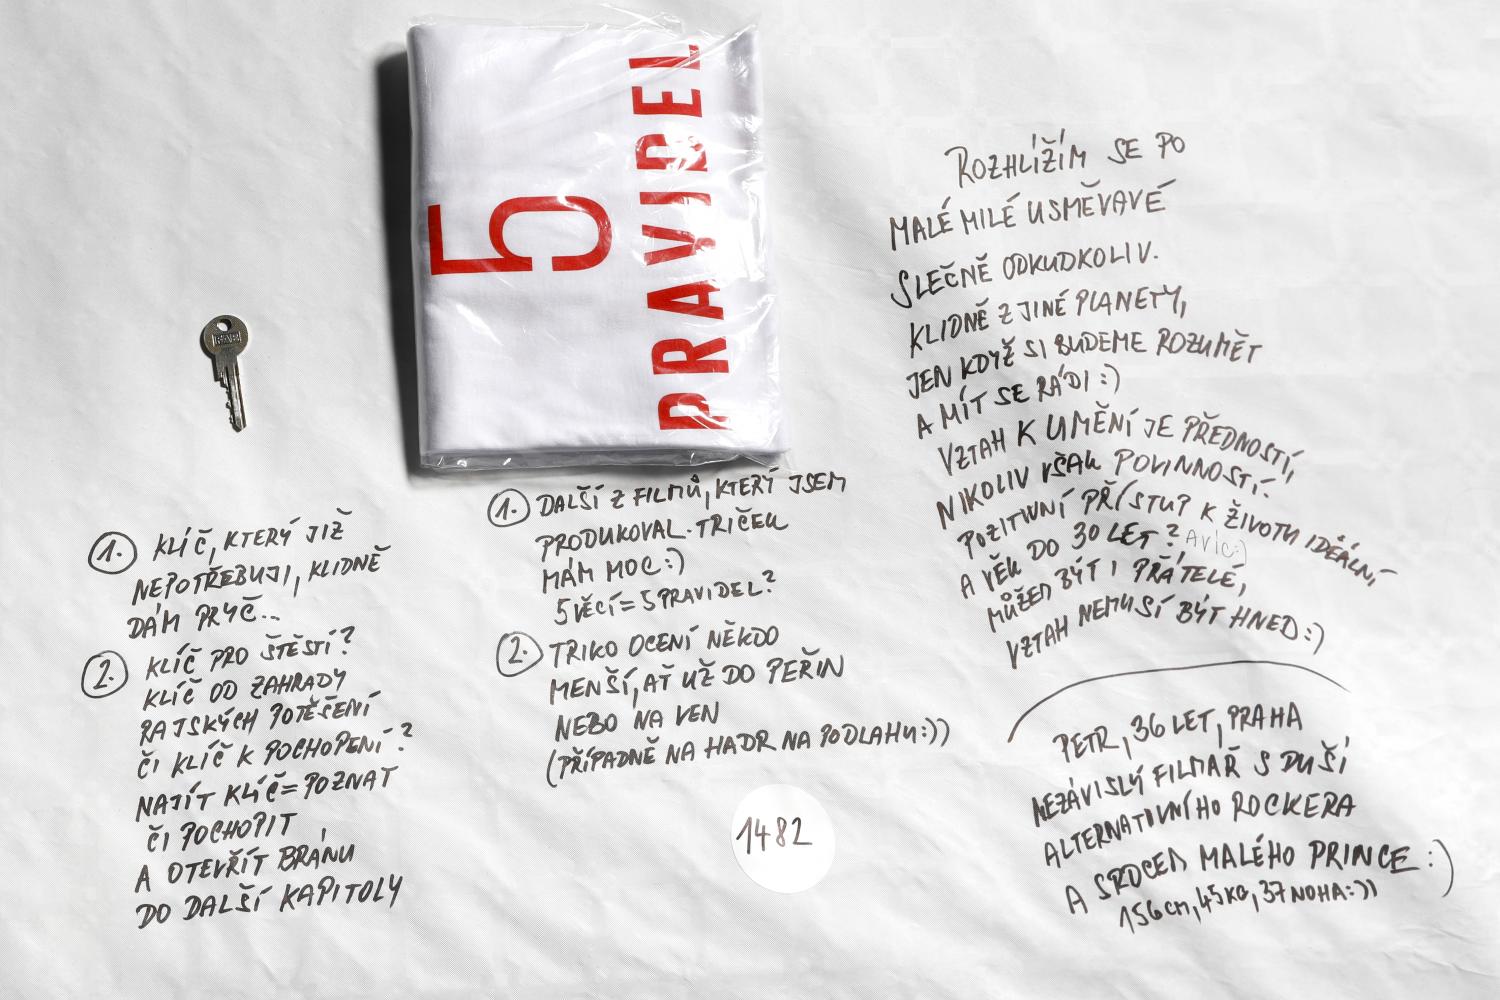 5
PRAVIDEL
FAB
1. KLÍČ, KTERÝ JIŽ
NEPOTŘEBUJI, KLIDNĚ
DÁM PRYČ...
2. KLÍČ PRO ŠTĚSTÍ?
KLÍČ OD ZAHRADY
RAJSKÝCH POTĚŠENÍ
ČI KLÍČ K POCHOPENÍ?
NAJÍT KLÍČ=POZNAT
ČI POCHOPIT
A OTEVŘÍT BRÁNU
DO DALŠÍ KAPITOLY
1. DALŠÍ Z FILMŮ, KTERÝ JSEM
PRODUKOVAL. TRIČEK
MÁM MOC:)
5 VĚCÍ=5 PRAVIDEL?
2. TRIKO OCENÍ NĚKDO
MENŠÍ, AŤ UŽ DO PEŘIN
NEBO NA VEN
(PŘÍPADNĚ NA HADR NA PODLAHU:))
1482
ROZHLÍŽÍM SE PO
MALÉ MILÉ USMĚVAVÉ
SLEČNĚ ODKUDKOLIV.
KLIDNĚ Z JINÉ PLANETY,
JEN KDYŽ SI BUDEME ROZUMĚT
A MÍT SE RÁDI:)
VZTAH K UMĚNÍ JE PŘEDNOSTÍ,
NIKOLIV VŠAK POVINNOSTÍ.
POZITIVNÍ PŘÍSTUP K ŽIVOTU IDEÁLNÍ
A VĚK DO 30 LET? A VÍC:)
MŮŽEM BÝT I PŘÁTELÉ,
VZTAH NEMUSÍ BÝT HNED:)
PETR, 36 LET, PRAHA
NEZÁVISLÝ FILMAŘ S DUŠÍ
ALTERNATIVNÍHO ROCKERA
A SRDCEM MALÉHO PRINCE:)
156cm, 45KG, 37 NOHA:))